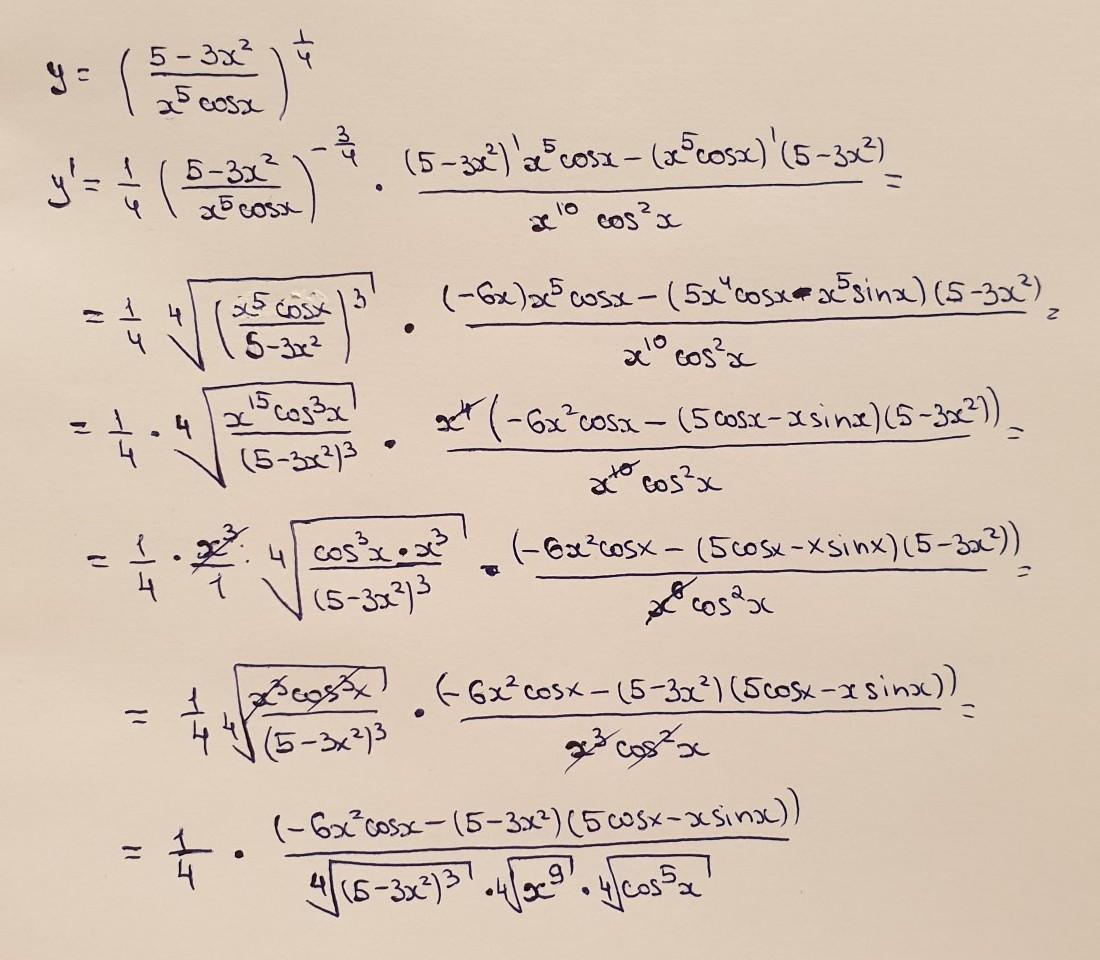 y = ( (5 - 3x²) / (x⁵ cosx) )^(1/4)
y' = 1/4 ( (5-3x²) / (x⁵cosx) )^(-3/4) · ( (5-3x²)' x⁵cosx - (x⁵cosx)' (5-3x²) ) / ( x¹⁰ cos²x ) =
= 1/4 ⁴√( (x⁵ cosx) / (5-3x²) )³ · ( (-6x)x⁵cosx - (5x⁴cosx - x⁵sinx)(5-3x²) ) / ( x¹⁰ cos²x ) =
= 1/4 · ⁴√( x¹⁵cos³x / (5-3x²)³ ) · x⁴(-6x²cosx - (5cosx - x sinx)(5-3x²)) / ( x¹⁰ cos²x ) =
= 1/4 · x³/1 · ⁴√( cos³x · x³ / (5-3x²)³ ) · (-6x²cosx - (5cosx - x sinx)(5-3x²)) / ( x⁶ cos²x ) =
= 1/4 ⁴√( x³cos³x / (5-3x²)³ ) · (-6x²cosx - (5-3x²)(5cosx - x sinx)) / ( x³ cos²x ) =
= 1/4 · (-6x²cosx - (5-3x²)(5cosx - x sinx)) / ( ⁴√(5-3x²)³ · ⁴√x⁹ · ⁴√cos⁵x )